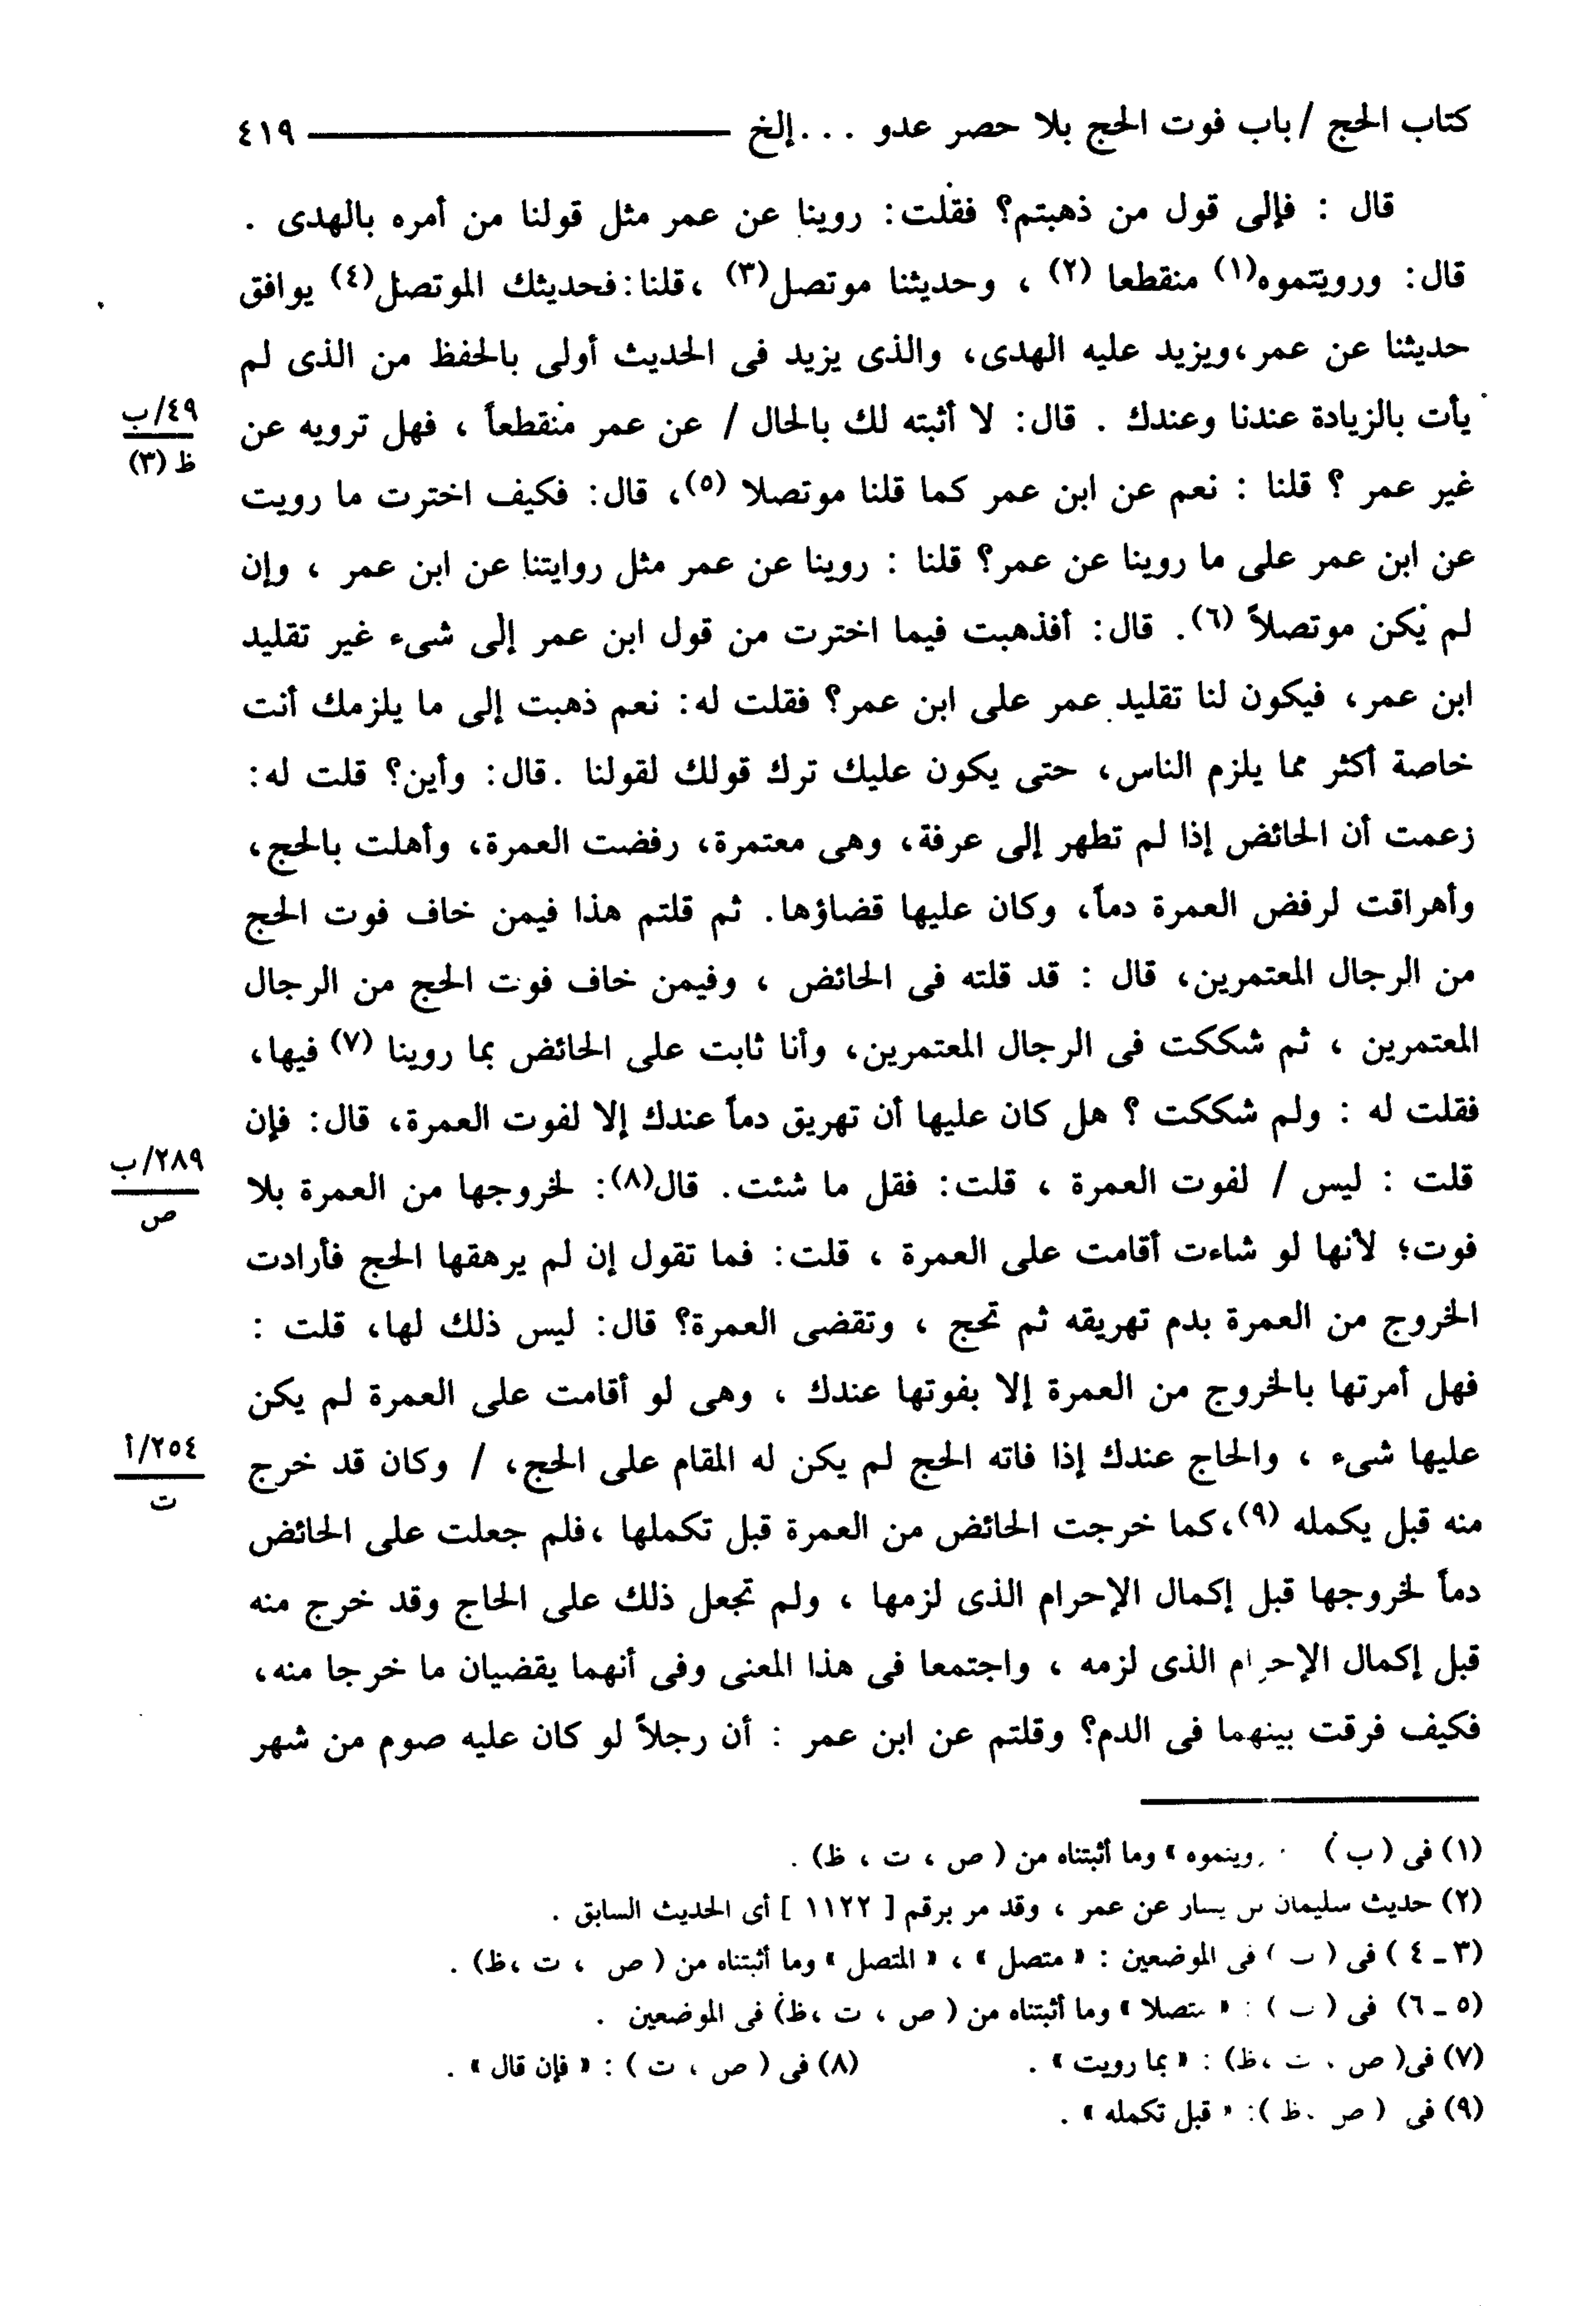 كتاب الحج / باب فوت الحج بلا حصر عدو . . . إلخ ــــــــــ ٤١٩
قال : فإلى قول من ذهبتم؟ فقلت: روينا عن عمر مثل قولنا من أمره بالهدى .
قال: ورويتموه(١) منقطعا (٢) ، وحديثنا موتصل(٣) ،قلنا:فحديثك الموتصل(٤) يوافق
حديثنا عن عمر،ويزيد عليه الهدى، والذى يزيد فى الحديث أولى بالحفظ من الذى لم
يأت بالزيادة عندنا وعندك . قال: لا أثبته لك بالحال / عن عمر منقطعاً ، فهل ترويه عن
٤٩/ب
ظ (٣)
غير عمر ؟ قلنا : نعم عن ابن عمر كما قلنا موتصلا (٥)، قال: فكيف اخترت ما رويت
عن ابن عمر على ما روينا عن عمر؟ قلنا : روينا عن عمر مثل روايتنا عن ابن عمر ، وإن
لم يكن موتصلاً (٦). قال: أفذهبت فيما اخترت من قول ابن عمر إلى شىء غير تقليد
ابن عمر، فيكون لنا تقليد عمر على ابن عمر؟ فقلت له: نعم ذهبت إلى ما يلزمك أنت
خاصة أكثر مما يلزم الناس، حتى يكون عليك ترك قولك لقولنا .قال: وأين؟ قلت له:
زعمت أن الحائض إذا لم تطهر إلى عرفة، وهى معتمرة، رفضت العمرة، وأهلت بالحج،
وأهراقت لرفض العمرة دماً، وكان عليها قضاؤها. ثم قلتم هذا فيمن خاف فوت الحج
من الرجال المعتمرين، قال : قد قلته فى الحائض ، وفيمن خاف فوت الحج من الرجال
المعتمرين ، ثم شككت فى الرجال المعتمرين، وأنا ثابت على الحائض بما روينا (٧) فيها،
فقلت له : ولم شككت ؟ هل كان عليها أن تهريق دماً عندك إلا لفوت العمرة، قال: فإن
قلت : ليس / لفوت العمرة ، قلت: فقل ما شئت. قال(٨): لخروجها من العمرة بلا
٢٨٩/ب
ص
فوت؛ لأنها لو شاءت أقامت على العمرة ، قلت: فما تقول إن لم يرهقها الحج فأرادت
الخروج من العمرة بدم تهريقه ثم تحج ، وتقضى العمرة؟ قال: ليس ذلك لها، قلت :
فهل أمرتها بالخروج من العمرة إلا بفوتها عندك ، وهى لو أقامت على العمرة لم يكن
عليها شىء ، والحاج عندك إذا فاته الحج لم يكن له المقام على الحج، / وكان قد خرج
٢٥٤/أ
ت
منه قبل يكمله (٩)،كما خرجت الحائض من العمرة قبل تكملها ،فلم جعلت على الحائض
دماً لخروجها قبل إكمال الإحرام الذى لزمها ، ولم تجعل ذلك على الحاج وقد خرج منه
قبل إكمال الإحرام الذى لزمه ، واجتمعا فى هذا المعنى وفى أنهما يقضيان ما خرجا منه،
فكيف فرقت بينهما فى الدم؟ وقلتم عن ابن عمر : أن رجلاً لو كان عليه صوم من شهر
(١) فى ( ب ) وما أثبتناه من ( ص ، ت ، ظ) .
(٢) حديث سليمان بن يسار عن عمر ، وقد مر برقم [ ١١٢٢ ] أى الحديث السابق .
(٣ ـ ٤ ) فى ( ب ) فى الموضعين : « متصل » ، « المتصل » وما أثبتناه من ( ص ، ت ،ظ) .
(٥ ـ ٦) فى ( ب ) : « متصلا » وما أثبتناه من ( ص ، ت ،ظ) فى الموضعين .
(٧) فى( ص ، ت ،ظ) : « بما رويت » .
(٨) فى ( ص ، ت ) : « فإن قال » .
(٩) فى ( ص ، ظ ): « قبل تكمله » .